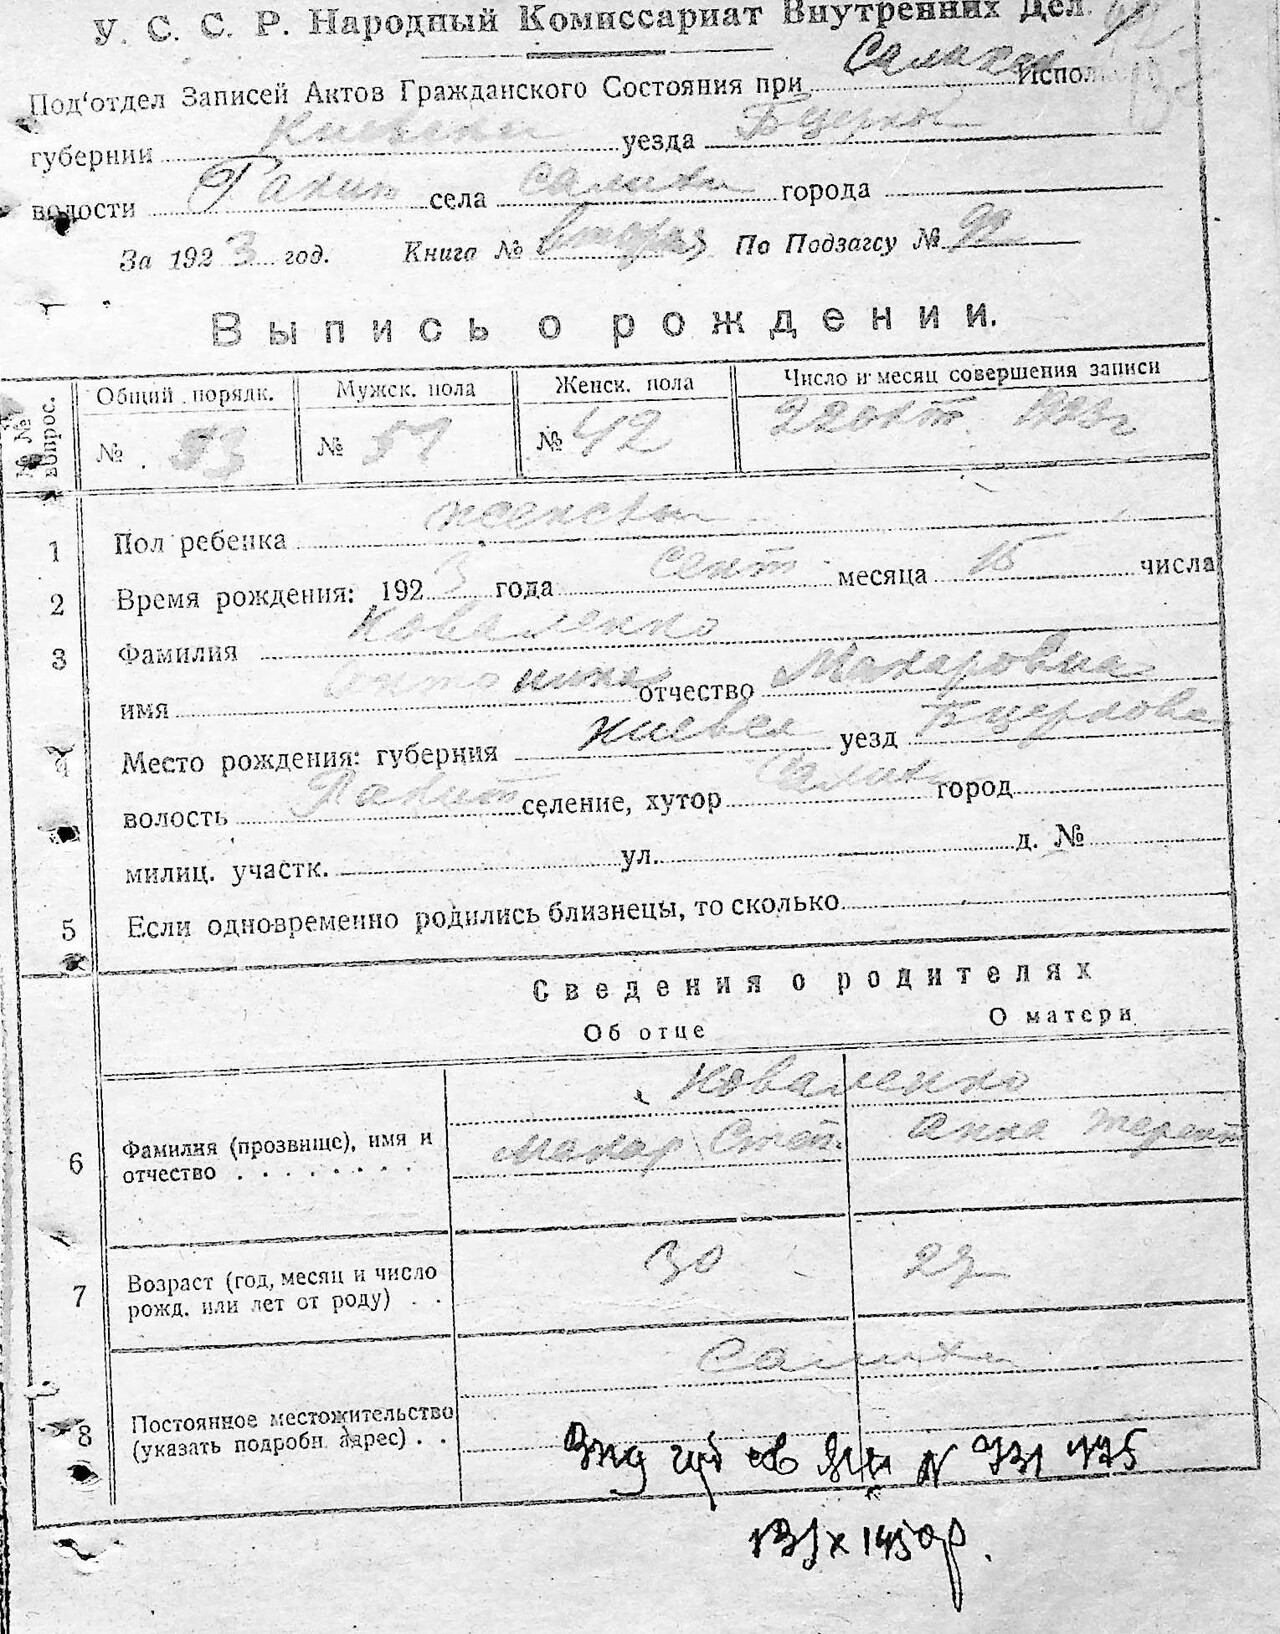 У. С. С. Р. Народный Комиссариат Внутренних Дел.
Под'отдел Записей Актов Гражданского Состояния при Салихск Испол
губернии Киевски уезда Бцерков
волости Ракит села Салихи города
За 1923 год. Книга № вторая По Подзагсу № 92
Выпись о рождении.
№№ вопрос. Общий порядк. Мужск. пола Женск. пола Число и месяц совершения записи
№ 93 № 51 № 42 22 окт. 1923 г
1 Пол ребенка женский
2 Время рождения: 1923 года сент месяца 15 числа
3 Фамилия Коваленко
имя Антонина отчество Макаровна
4 Место рождения: губерния Киевск уезд Бцерковс
волость Ракит селение, хутор Салихи город
милиц. участк. ул. д. №
5 Если одновременно родились близнецы, то сколько
Сведения о родителях
Об отце О матери
Коваленко
6 Фамилия (прозвище), имя и отчество Макар Степ. Анна Терент
7 Возраст (год, месяц и число рожд. или лет от роду) 30 23
Салихи
8 Постоянное местожительство (указать подробн. адрес)
№ 731175